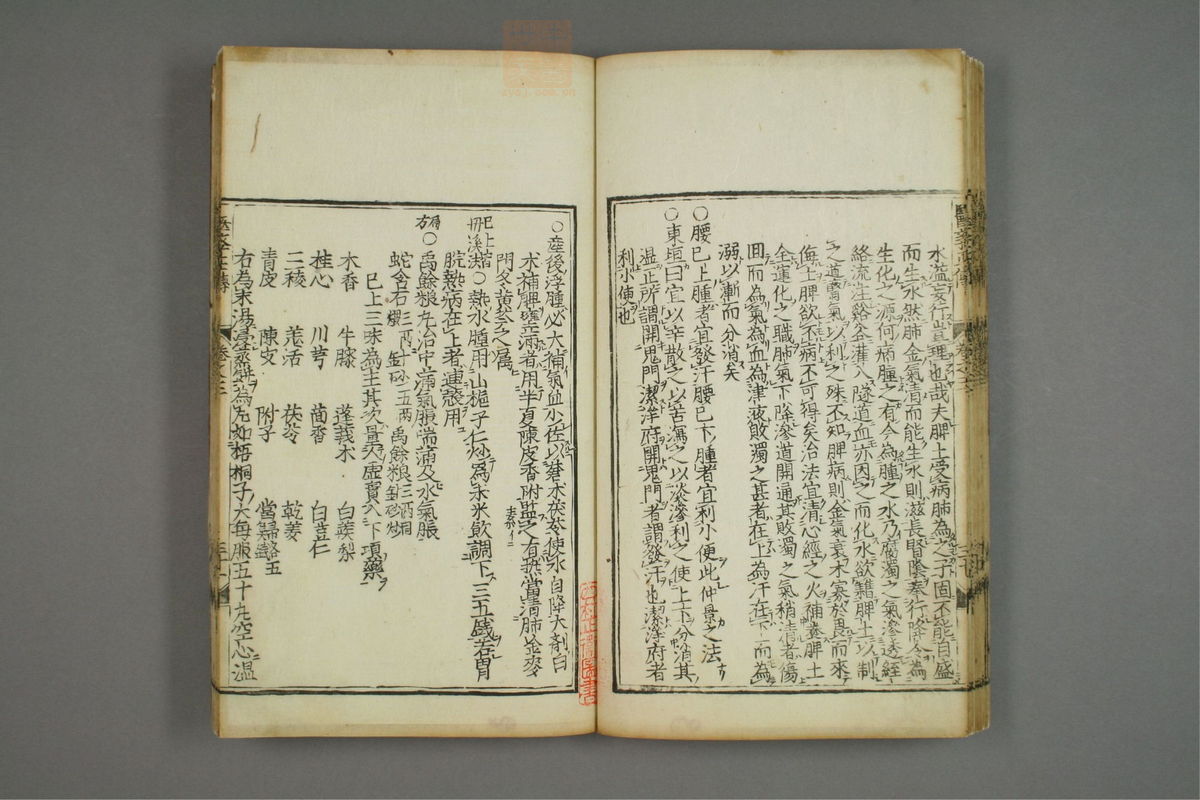 水溢妄行豈理也哉夫脾土受病肺為之子固不能自盛
而生水然肺金氣清而能生水則滋長腎陰奉行降令為
生化之源何病腫之有今為腫之水乃腐濁之氣滲透經
絡流注谿谷灌入隧道血亦因之而化水欲藉脾土以制
之道氣以利之殊不知脾病則金氣衰木寡於畏而來
侮土脾欲不病不可得矣治法宜清心經之火補養脾土
全運化之職肺氣下降滲道開通其敗濁之氣稍清者傷
囬而為氣為血為津液敗濁之甚者在上為汗在下而為
溺以漸而分消矣
○腰已上腫者宜發汗腰已下腫者宜利小便此仲景之法
○東垣曰宜以辛散之以苦瀉之以淡滲利之使上下分消其
溫正所謂開鬼門潔淨府開鬼門者謂發汗也潔淨府者
利小便也
○産後浮腫必大補氣血少佐以蒼朮茯苓使水自降大劑白
朮補脾壅滿者用半夏陳皮香附監之有熱當清肺金麥
門冬黄芩之屬
已上皆丹溪法○熱水腫用山梔子仁炒為末米飲調下三五錢若胃
脘熱病在上者連殼用
局方○禹餘糧丸治中滿氣脹喘滿及水氣脹
蛇含石三兩 針砂五兩 禹餘粮三兩
已上三味為主其次量人虛實入下項藥
木香 牛膝 蓬莪朮 白蒺梨
桂心 川芎 茴香 白荳仁
三稜 羌活 茯苓 乾姜
青皮 陳皮 附子 當歸各五
右為末湯浸蒸餅為丸如梧桐子大每服五十丸空心溫